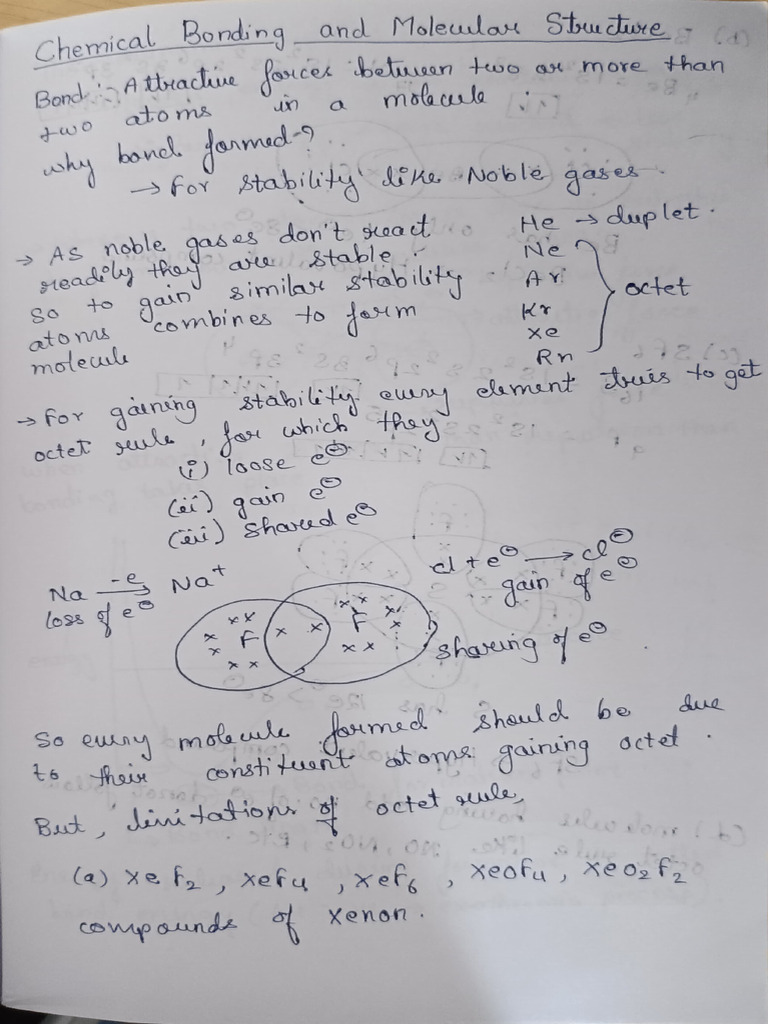 Chemical Bonding and Molecular Structure
Bond :- Attractive forces between two or more than
two atoms in a molecule.
why bond formed-?
→ For stability like Noble gases.
→ As noble gases don't react
readily they are stable.
So to gain similar stability
atoms combines to form
molecule
He → duplet.
Ne
Ar
Kr
Xe
Rn
octet
→ For gaining stability every element tries to get
octet rule, for which they
(i) loose e⊖
(ii) gain e⊖
(iii) shared e⊖
Na -e→ Na+
loss of e⊖
Cl + e⊖ → Cl⊖
gain of e⊖
xx x x xx F x x F xx xx x xx
sharing of e⊖
So every molecule formed should be due
to their constituent atoms gaining octet.
But, limitations of octet rule,
(a) XeF2, XeF4, XeF6, XeOF4, XeO2F2
compounds of xenon.